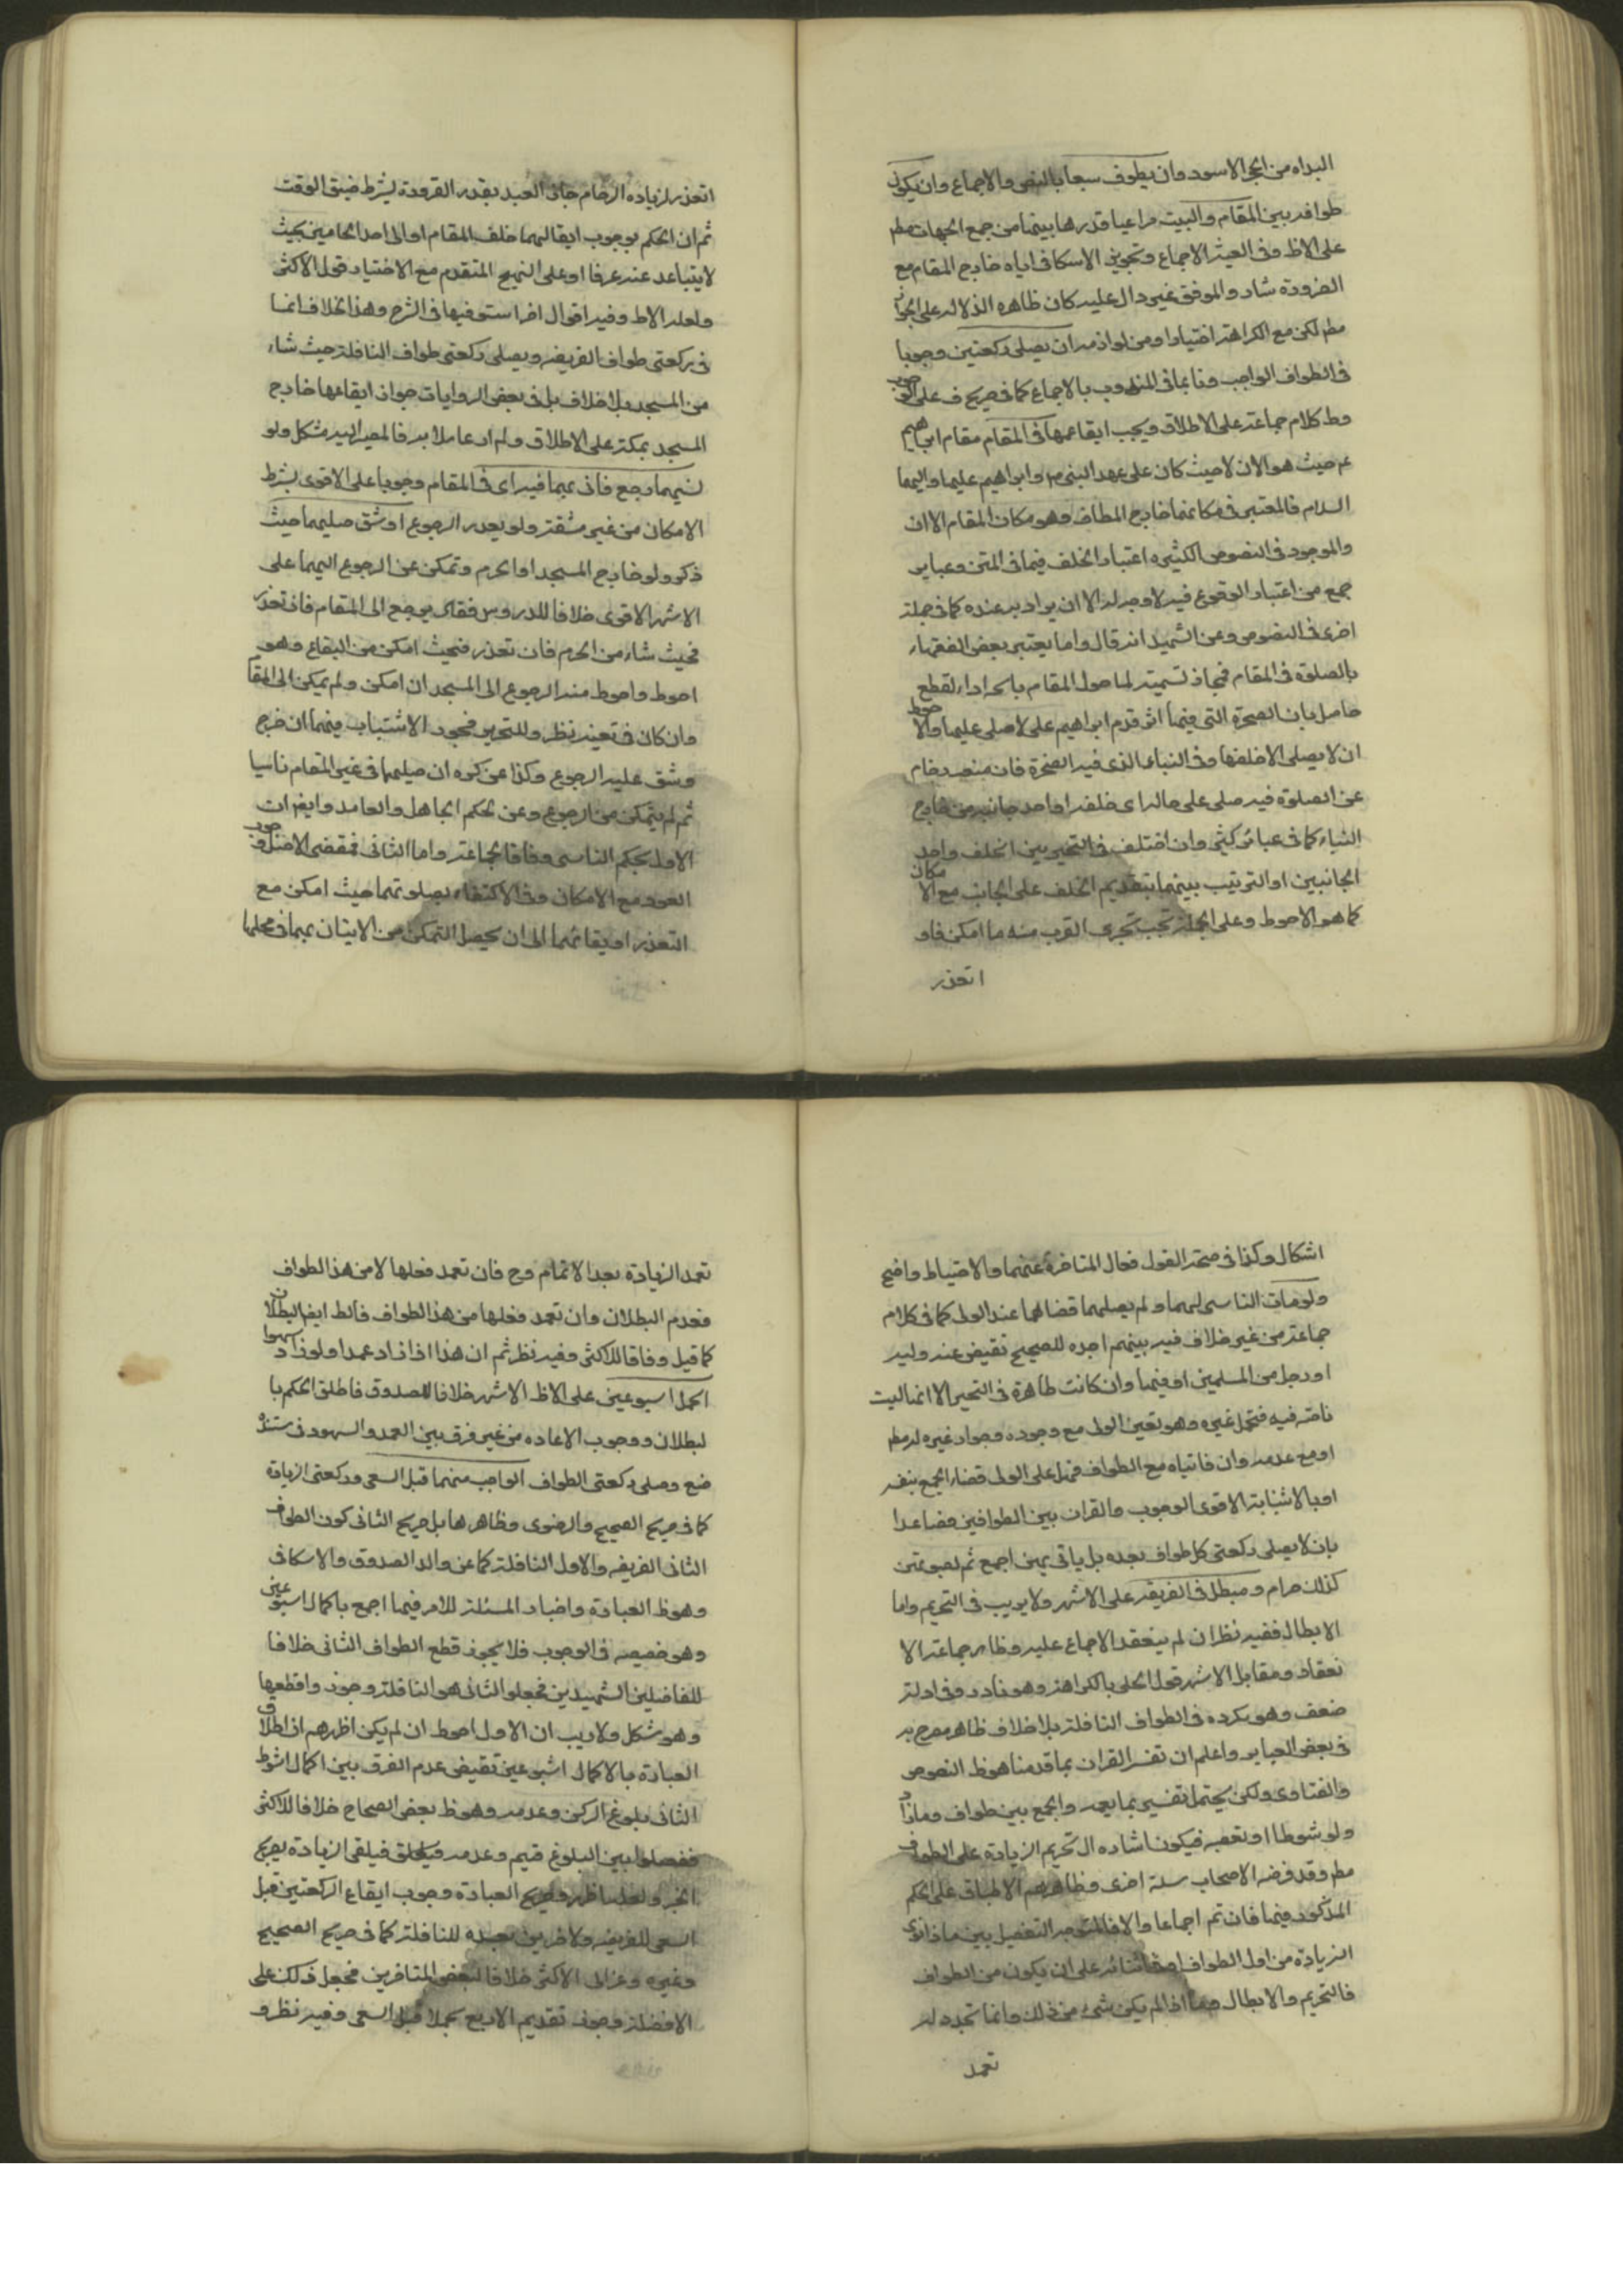 البداه من الحجر الاسود وان يطوف سبعا بالنص والاجماع وان يكون
طوافه بين المقام والبيت مراعيا قدرها بينهما من جمع الجهات مطم
على الاظ وفى الاجماع وتجويز الاسكافى اياه خارج المقام مع
الضرورة شاد والموفق غير دال عليه كان ظاهره الدلاله على الجواز
مطم لكن مع الكراهته اختيارا ومن لوازمه ان يصلى ركعتين وجوبا
فى الطواف الواجب وندبا فى المندوب بالاجماع كما فى صريح ف على الوجوب
وظ كلام جماعته على الاطلاق ويجب ايقاعهما فى المقام مقام ابراهيم
عم حيث هو الان لا حيث كان على عهد النبى ص وابراهيم عليهما واليهما
السلام فالمعتبر فى مكانهما خارج المطاف وهو مكان المقام الا ان
والموجود فى النصوص الكثيره اعتبار الخلف فيما فى المتن وعباير
جمع من اعتبار الوقوع فيه لا وجه له الا ان يراد به عنده كما فى جملة
اخرى فى النصوص وعن الشهيد انه قال واما يعتبر بعض الفقهاء
بالصلوة فى المقام فمجاز تسميته لما حول المقام باسمه اداء لقطع
حاصل بان الصخرة التى فيها اثر قدم ابراهيم على لا صلى عليها والاحوط
ان لا يصلى الا خلفها وفى البناء الذى فيه الصخرة فان منعه زحام
عن الصلوة فيه صلى على حاله اى خلفه او احد جانبيه من خارج
البناء كما فى عبائر كثير وان اختلف فى التخيير بين الخلف واحد
الجانبين او الترتيب بينهما بتقديم الخلف على الجانب مع الامكان
كما هو الاحوط وعلى الجملة يجب تحرى القرب منه ما امكن فاو
اتعذر
اتعذر لزياده الزحام جاز العبد بقدر الضرورة بشرط ضيق الوقت
ثم ان الحكم بوجوب ايقاعهما خلف المقام او الى احد الجانبين بحيث
لا يتباعد عنه عرفا او على النهج المتقدم مع الاختيار قول الاكثر
ولعله الاظ وفيه اقوال اخر استوفيها فى الشرح وهذا الخلاف انما
فى ركعتى طواف الفريضه ويصلى ركعتى طواف النافلة حيث شاء
من المسجد بلا خلاف بل فى بعض الروايات جواز ايقاعها خارج
المسجد بمكة على الاطلاق ولم ار عاملا به فالمصير اليه مشكل ولو
نسيهما رجع فاتى بهما فيه اى فى المقام وجوبا على الاقوى بشرط
الامكان من غير مشقة ولو تعذر الرجوع اوشق صليهما حيث
ذكر ولو خارج المسجد او الحرم وتمكن عن الرجوع اليهما على
الاشهر الاقوى خلافا للدروس فقال يرجع الى المقام فان تعذر
فحيث شاء من الحرم فان تعذر فحيث امكن من البقاع وهو
احوط واحوط منه الرجوع الى المسجد ان امكن ولم يمكن الى المقا
وان كان فى تعينه نظر وللتحرير فجوز الاستنابه فيهما ان خرج
وشق عليه الرجوع وكذا عن كره ان صليهما فى غير المقام ناسيا
ثم لم يتمكن من الرجوع وعن الحكم الجاهل والعامد وايضا ان
الاول بحكم الناسى وفاقا لجماعته واما الثانى فمقتضى الاصل وجوب
العود مع الامكان وفى الاكتفاء بصلوتهما حيث امكن مع
التعذر او بقائهما الى ان يحصل التمكن من الاتيان بهما فى محلهما
اشكال وكذا فى صحة القول فعال المتاخرة عنهما والاحتياط واضح
ولو مات الناسى لهما ولم يصلهما قضاهما عنه الولى كما فى كلام
جماعته من غير خلاف فيه بينهم اجده للصحيح تقيض عنه وليه
او رجل من المسلمين او فيهما وان كانت ظاهرة فى التخير الا انها ليست
ناصة فيه فتحمل غيره وهو تعين الولى مع وجوده وجواز غيره له مطم
او مع عدمه وان فاتياه مع الطواف فهل على الولى قضاء الجمع بنفسه
او بالاستنابة الاقوى الوجوب والقران بين الطوافين فصاعدا
بان لا يصلى ركعتى كل طواف بعده بل ياتى بهن اجمع ثم بصلوتهن
كذلك حرام ومبطل فى الفريضه على الاشهر ولا يريب فى التحريم واما
الابطال ففيه نظر ان لم ينعقد الاجماع عليه وظاهر جماعته الا
نعقاد ومقابل الاشهر قول الحلى بالكراهة وهو نادر وفى ادلته
ضعف وهو يكره فى الطواف النافلة بلا خلاف ظاهر مصرح به
فى بعض العباير واعلم ان تفسر القران بما قدمنا هو ظ النصوص
والفتاوى ولكن يحتمل تفسيره بما يعمه والجمع بين طواف وما زاد
ولو شوطا او بعضه فيكون اشاره الى تحريم الزيادة على الطواف
مطم وقد فرضه الاصحاب مسئلة اخرى وظاهرهم الاطباق على الحكم
المذكور فيها فان تم اجماعا والا فالمتوجه التفصيل بين ما اذا نوى
الزيادة من اول الطواف او فى اثنائه على ان يكون من الطواف
فالتحريم والابطال وما اذا لم يكن شئ من ذلك وانما تجدد له
تعمد
تعمد الزيادة بعد الاتمام وح فان تعمد فعلها لا من هذا الطواف
فعدم البطلان وان تعمد فعلها من هذا الطواف فالظ ايضا البطلان
كما قيل وفاقا للاكثر وفيه نظر ثم ان هذا اذا زاد عمدا ولو زاد سهوا
اكمل اسبوعين على الاظ الاشهر خلافا للصدوق فاطلق الحكم با
لبطلان ووجوب الاعاده من غير فرق بين العمد والسهو وفى سنده
ضع وصلى ركعتى الطواف الواجب منهما قبل السعى وركعتى الزيادة
كما فى صريح الصحيح والرضوى وظاهرها بل صريح الثانى كون الطواف
الثانى الفريضه والاول النافلة كما عن والد الصدوق والاسكافى
وهو ظ العبادة واخبار المسئلة للامر فيها اجمع باكمال اسبوعين
وهو حقيقه فى الوجوب فلا يجوز قطع الطواف الثانى خلافا
للفاضلين الشهيدين فجعلوا الثانى هو النافلة وجوزوا قطعها
وهو مشكل ولا ريب ان الاول احوط ان لم يكن اظهر هم ان اطلاق
العبارة بالاكمال اسبوعين تقيض عدم الفرق بين اكمال الشوط
الثانى بلوغ الركن وعدمه وهو ظ بعض الصحاح خلافا للاكثر
ففصلوا بين البلوغ فيتم وعدمه فيلقى الزيادة بصريح
الخبر ولعله اظهر وصريح العبارة وجوب ايقاع الركعتين قبل
السعى للفريضه والاخريين بعده للنافلة كما فى صريح الصحيح
وغيره وعزى الى الاكثر خلافا لبعض المتاخرين فجعل ذلك على
الافضلية وجوز تقديم الاربع جملا قبل السعى وفيه نظر و